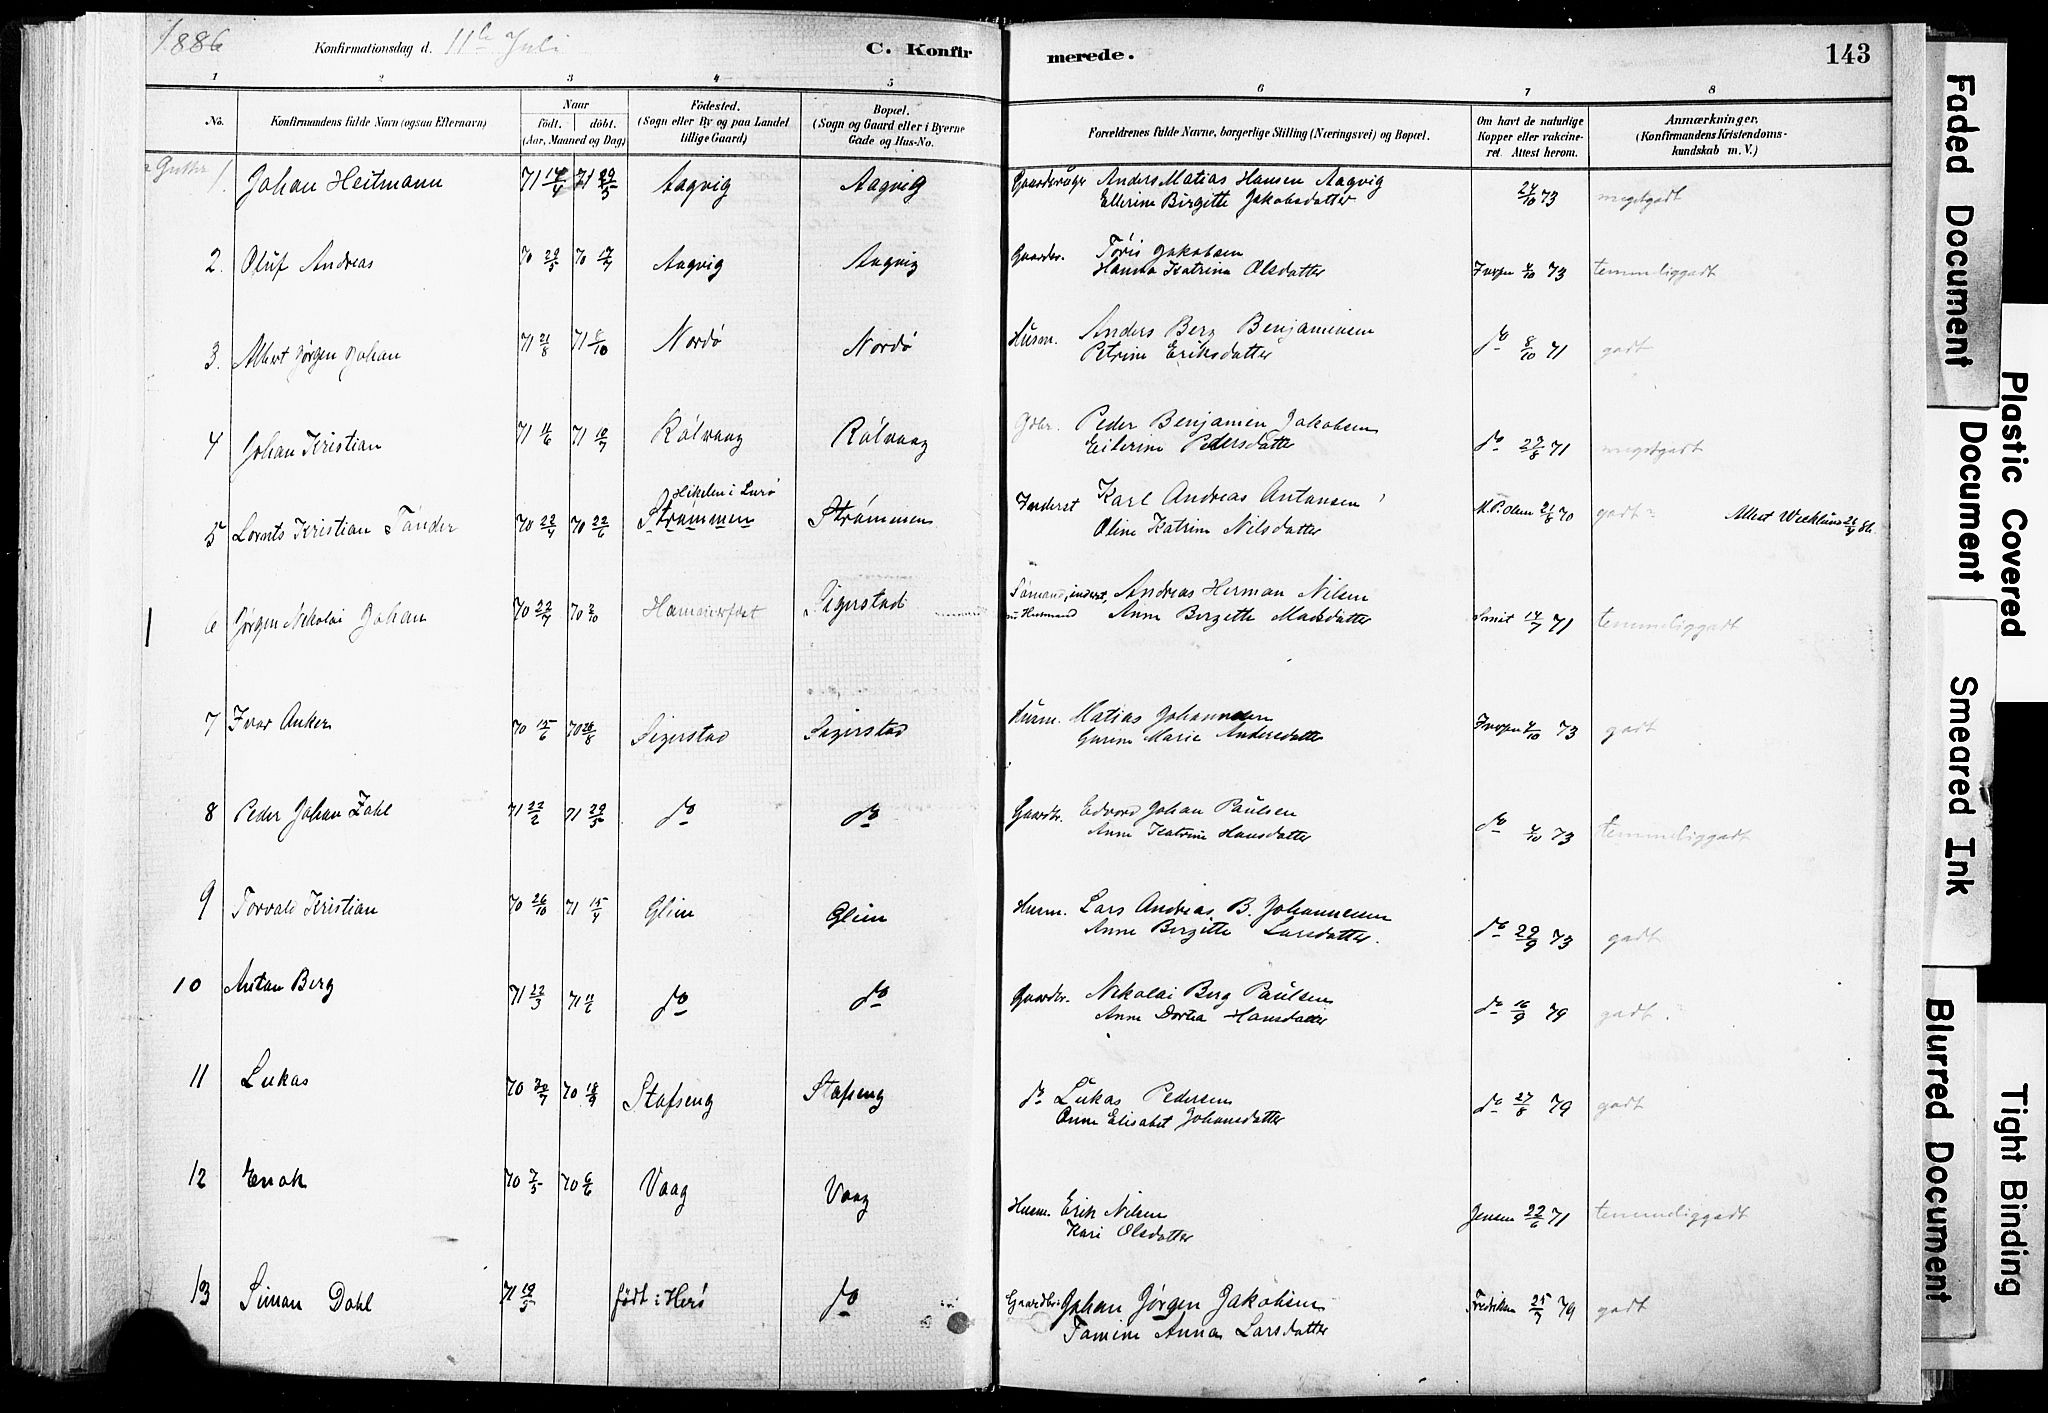 1886 Konfirmationsdag d. 11te Juli C. Konfirmerede. 143
1 2 3 4 5 6 7 8
No. Konfirmandens fulde Navn (ogsaa Efternavn) Naar födt. döbt. (Aar, Maaned og Dag) Födested. (Sogn eller By og paa Landet tillige Gaard) Bopæl. (Sogn og Gaard eller i Byerne Gade og Hus-No. Forældrenes fulde Navne, borgerlige Stilling (Næringsvei) og Bopæl. Om havt de naturlige Kopper eller vakcineret. Attest herom. Anmærkninger. (Konfirmandens Kristendomskundskab m. V.)
1. Johan Heitmann 71 14/4 71 29/5 Aagvig Aagvig Anders Matias Hansen Aagvig 24/10 73 megetgodt
Ellerine Birgitte Jakobsdatter
2. Oluf Andreas 70 29/5 70 17/7 Aagvig Aagvig Gaardbr. Töris Jakobsen
Hanna Katrina Olsdatter 4/10 73 temmeliggodt
3. Albert Jörgen Johan 71 21/8 71 8/10 Nordö Nordö Husm. Anders Berg Benjaminsen
Petrine Eriksdatter do 8/10 71 godt
4 Johan Kristian 71 11/6 71 10/7 Rölvaag Rölvaag Gdbr. Peder Benjamin Jakobsen
Eilerine Pedersdatter do 27/8 71 megetgodt
5 Lornts Kristian Tander 70 22/4 70 22/6 Strömmen Strömmen Inderst Karl Andreas Antonsen
Oline Katrine Nilsdatter 21/8 70 godt
6 Jörgen Nikolai Johan 70 22/7 70 2/10 Sigerstad Andreas Herman Nilsen
Anne Birgitte Madsdatter 14/7 71 temmeliggodt
7 Ivar Anker 70 15/6 70 28/8 Sigerstad Sigerstad Husm. Matias Johannesen
Gurine Marie Andersdatter 4/10 73 godt
8 Peder Johan Zahl 71 22/2 71 29/5 do do Gaardbr. Edvard Johan Paulsen
Anne Katrine Hansdatter do 4/10 73 temmeliggodt
9 Torvald Kristian 70 26/10 71 15/4 Glein Glein Husm. Lars Andreas B. Johannesen
Anne Birgitte Larsdatter. do 29/9 73 godt
10 Antan Berg 71 22/3 71 11/6 do do Gaardbr. Nikolai Berg Paulsen
Anne Dortea Hansdatter do 16/9 79 godt
11 Lukas 70 20/7 70 18/9 Stafseng Stafseng do Lukas Pedersen
Anne Elisabet Johansdatter do 27/8 79 godt
12 Enok 70 7/5 70 6/6 Vaag Vaag Husm. Erik Nilsen
Kari Olsdatter Jensen 22/6 71 temmeliggodt
13 Simon Dahl 71 19/5 födt i Herö do Johan Jörgen Jakobsen
Tamine Anna Larsdatter 25/7 79 godt
Faded Document
Plastic Covered Document
Smeared Ink
Blurred Document
Tight Binding